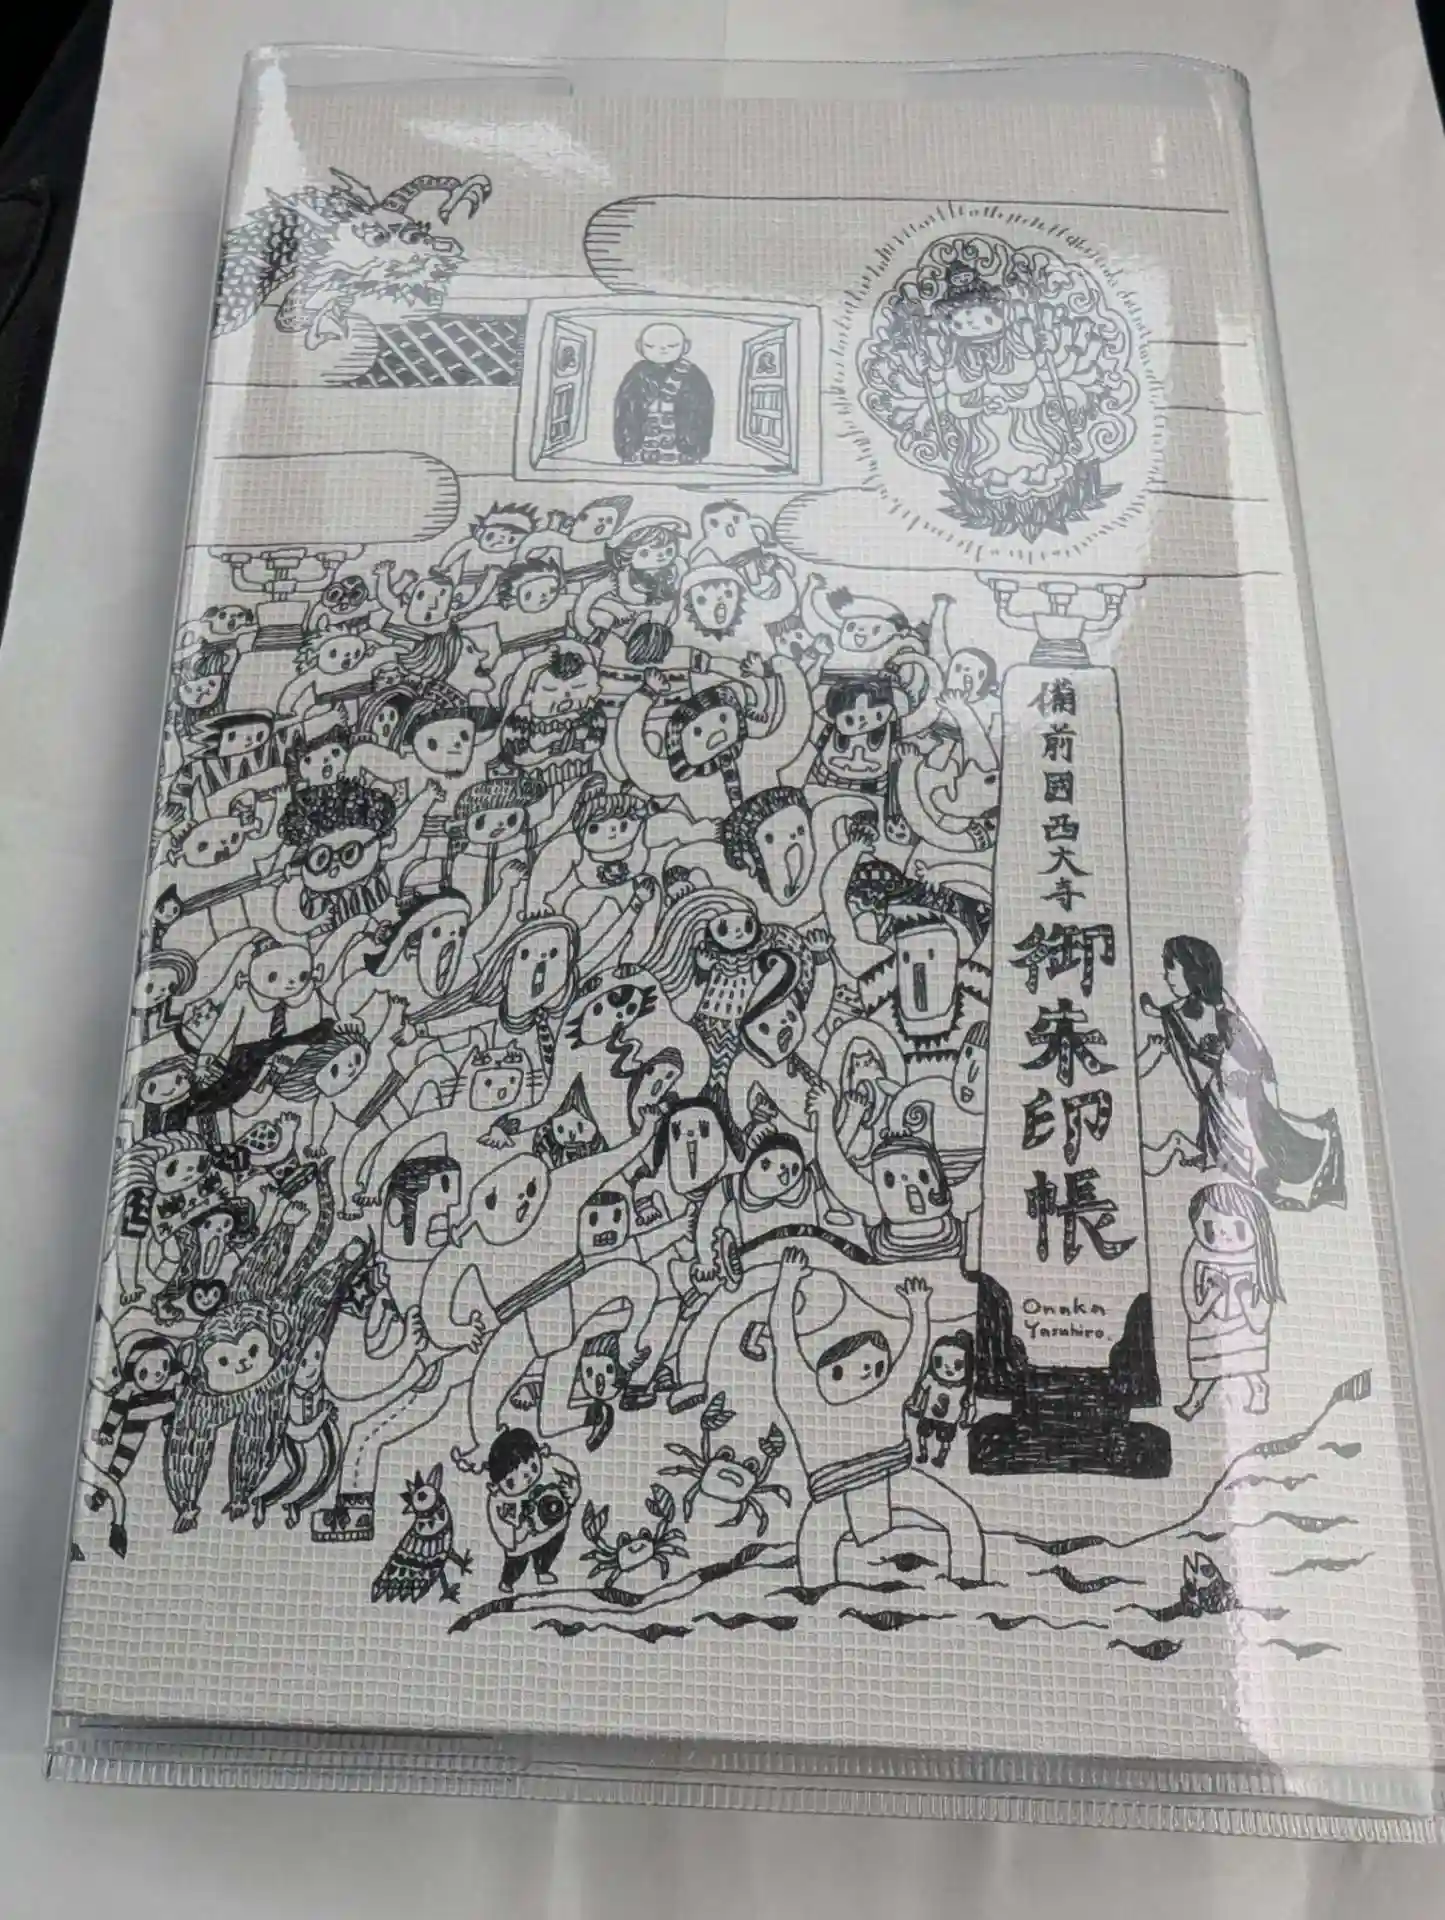 備前國西大寺
御朱印帳
Onaka
Yasuhiro.